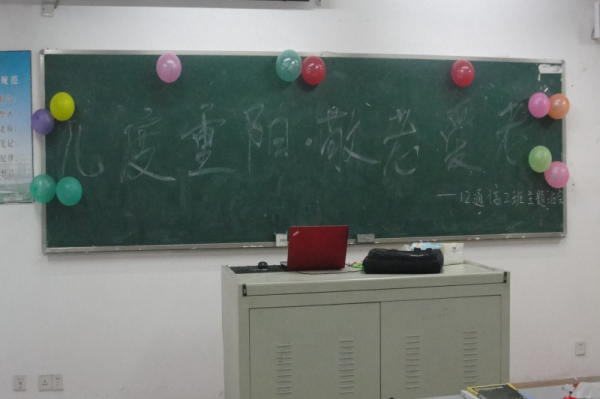 几度重阳·敬老爱老
——12通信二班主题班会
规范